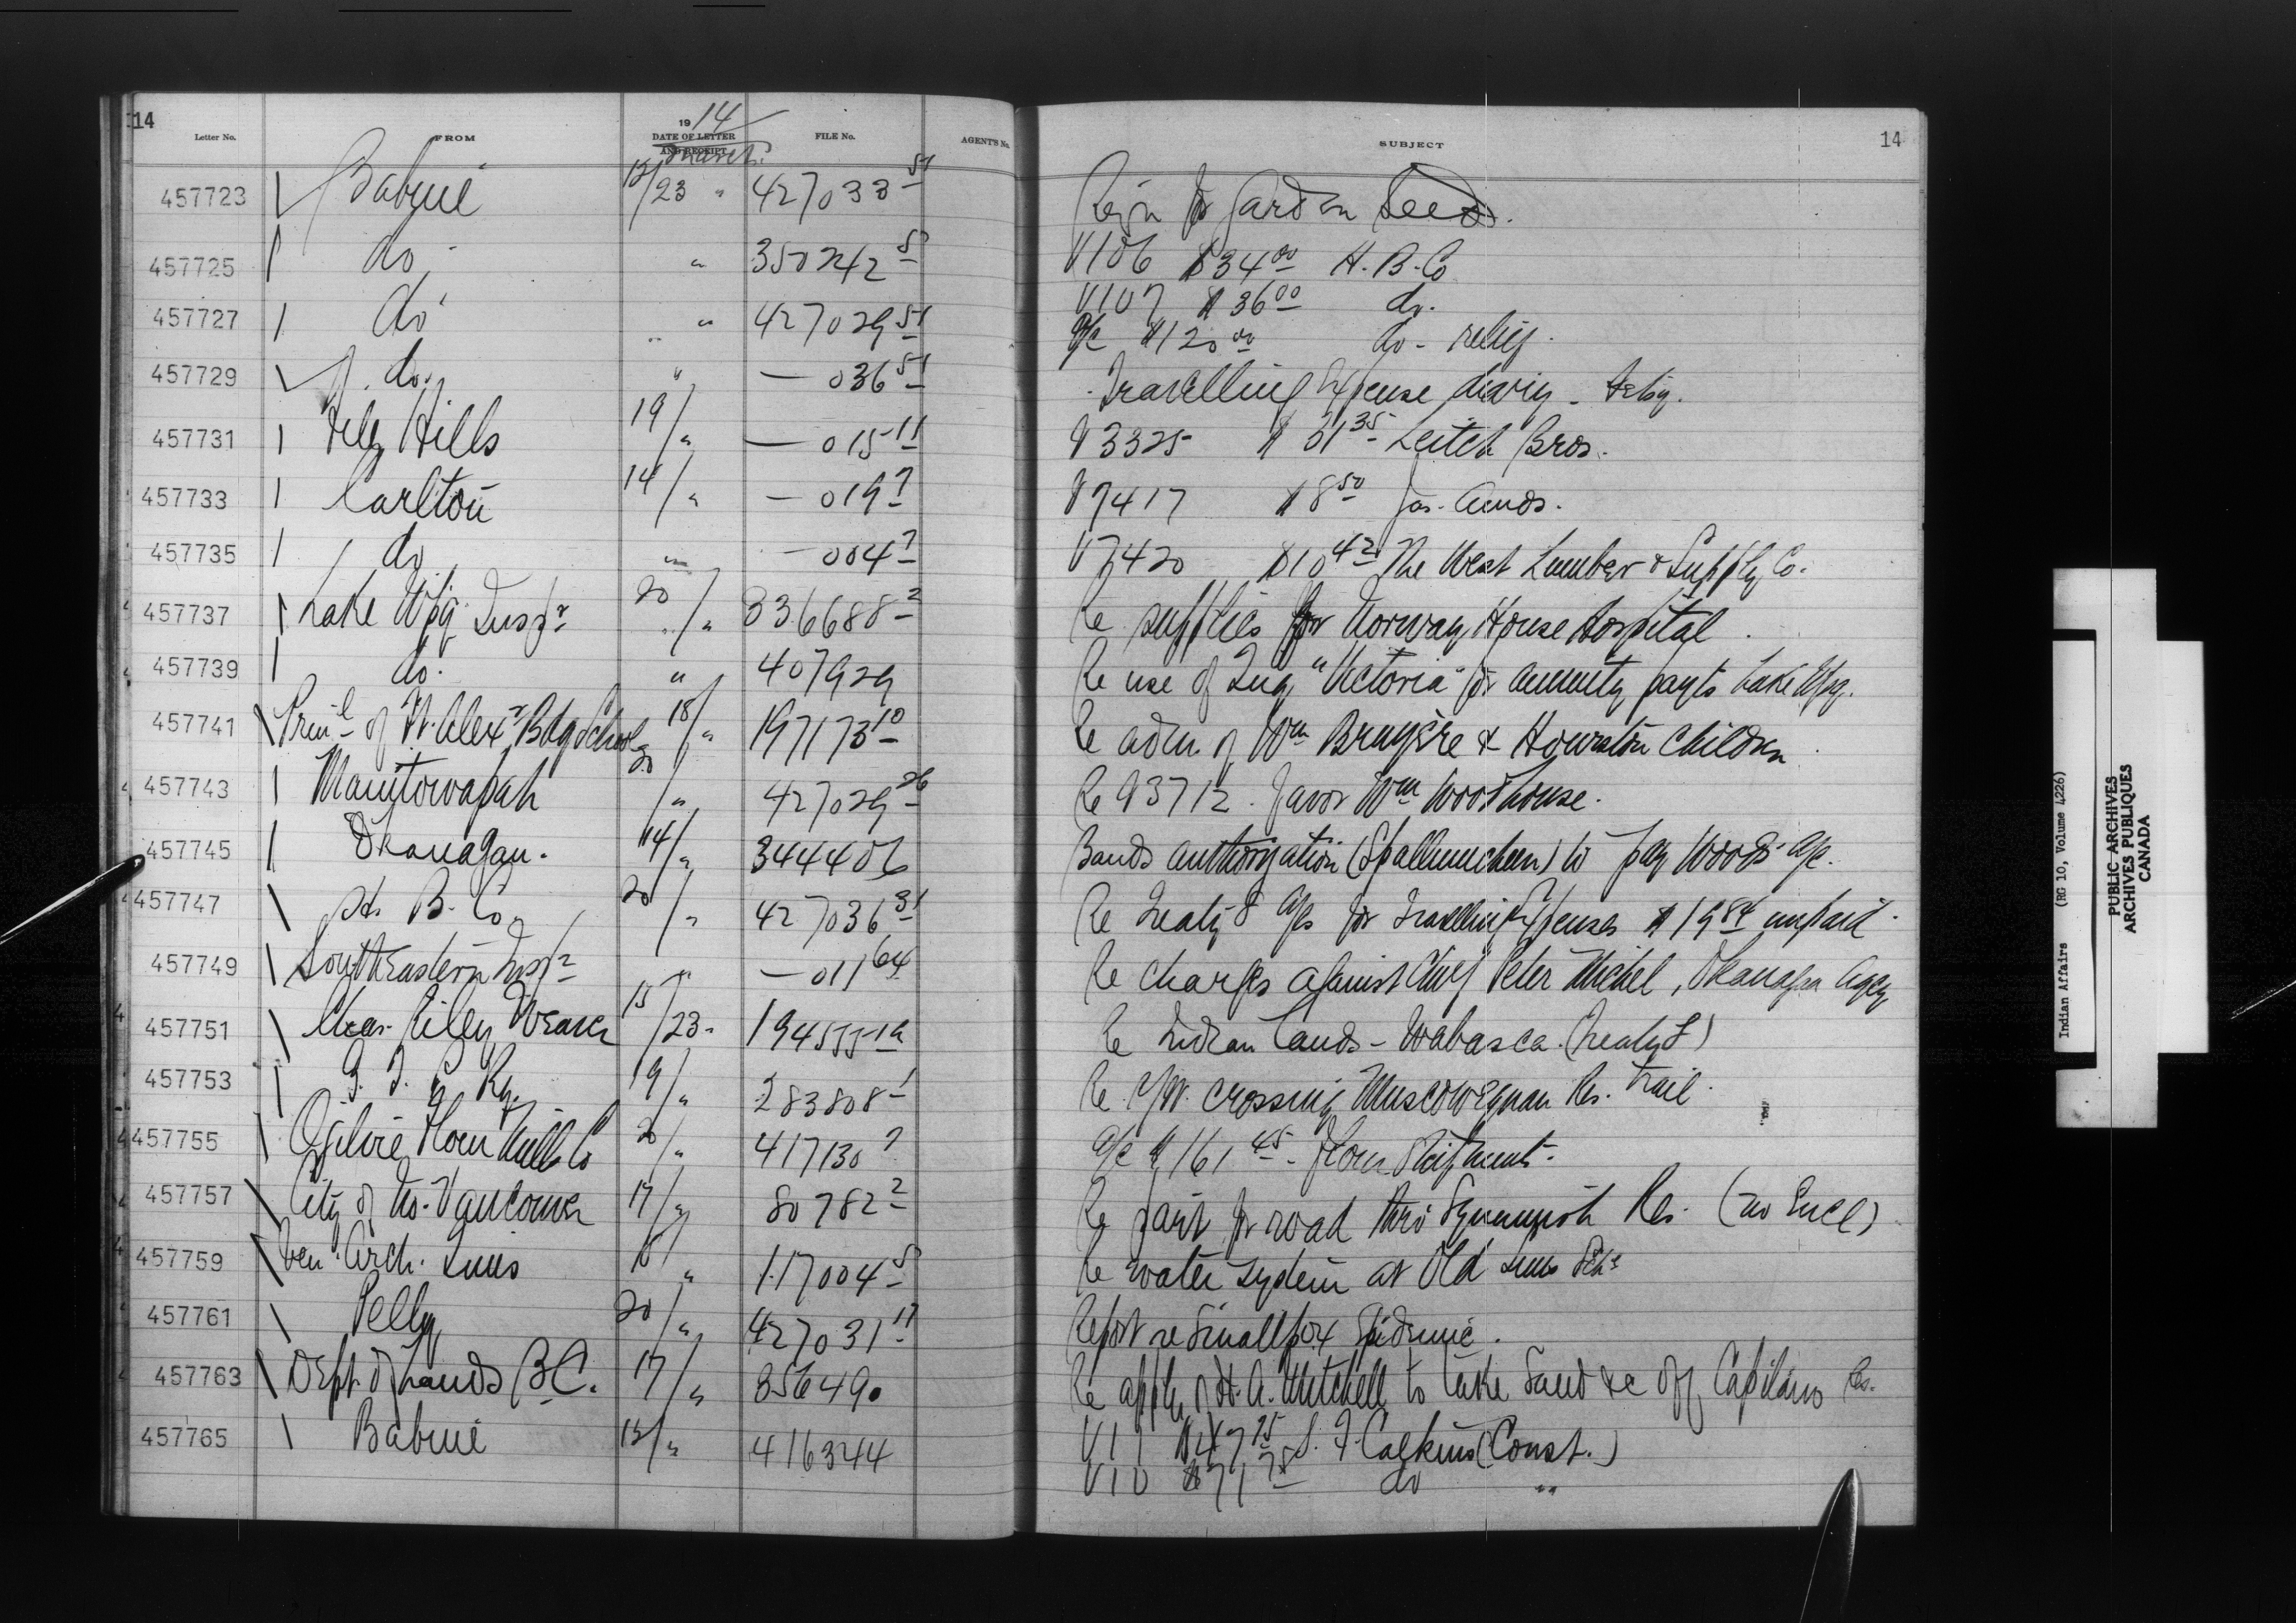 14
14
19 14
Letter No. FROM DATE OF LETTER AND RECEIPT FILE No. AGENT'S No. SUBJECT
March
457723 Babine 12/23 " 427033 51 Reqn for Garden Seeds.
457725 do " 350242 5 V106 $34 00 H. B. Co
457727 do " 427029 51 V107 $36 00 do.
a/c $120 00 do - relief.
457729 do. " — 036 51 Travelling Expense diary - Feby.
457731 File Hills 19/" — 015 11 V3325 $31 35 Leitch Bros.
457733 Carlton 14/" — 019 7 V7417 $8 50 Jas.
457735 do " — 004 7 V7420 $10 42 The West Lumber & Supply Co.
457737 Lake Wpg. Inspr 20/" 336688 2 Re supplies for Norway House Hospital.
457739 do. " 407929 Re use of Tug "Victoria" for annuity payts Lake Wpg.
457741 Prinl of Ft. Alexr Bdg School 18/" 197173 10 Re adm of Wm Bruyère & Hourston Children
457743 Manitowapah 20/" 427029 26 Re V3712. favor Wm Woodhouse.
457745 Okanagan. 14/" 344406 Bands authorization (Spallumcheen) to pay Woods' a/c.
457747 H. B. Co 20/" 427036 31 Re Treaty 8 a/cs for Travelling Expenses $19 84 unpaid.
457749 South Eastern Inspr " — 011 64 Re charges against Chief Peter Michel, Okanagan Agcy
457751 Chas. Riley Weaver 15/23 " 194555 1a Re Indian Lands - Wabasca. (Treaty 8)
457753 G. T. P. Ry. 19/" 283808 1 Re r/w. crossing Muscowequan Res. Trail.
457755 Ogilvie Flour Mills Co 20/" 417130 7 a/c $161 45 - Flour Shipment.
457757 City of No. Vancouver 17/" 80782 2 Re paint for road thro Squamish Res. (no Encl)
457759 Ven. Arch. Tims 18/" 117004 5 Re water system at Old Suns Schl
457761 Pelly 20/" 427031 17 Report re Smallpox Epidemic.
457763 Dept. of Lands B.C. 17/" 356490 Re appln of H. A. Mitchell to take Sand &c off Capilano Res.
457765 Babine 12/" 416344 V11 $47 75 S. F. Calkins (Const.)
V10 $71 75 do "
Indian Affairs (RG 10, Volume 4226)
PUBLIC ARCHIVES
ARCHIVES PUBLIQUES
CANADA